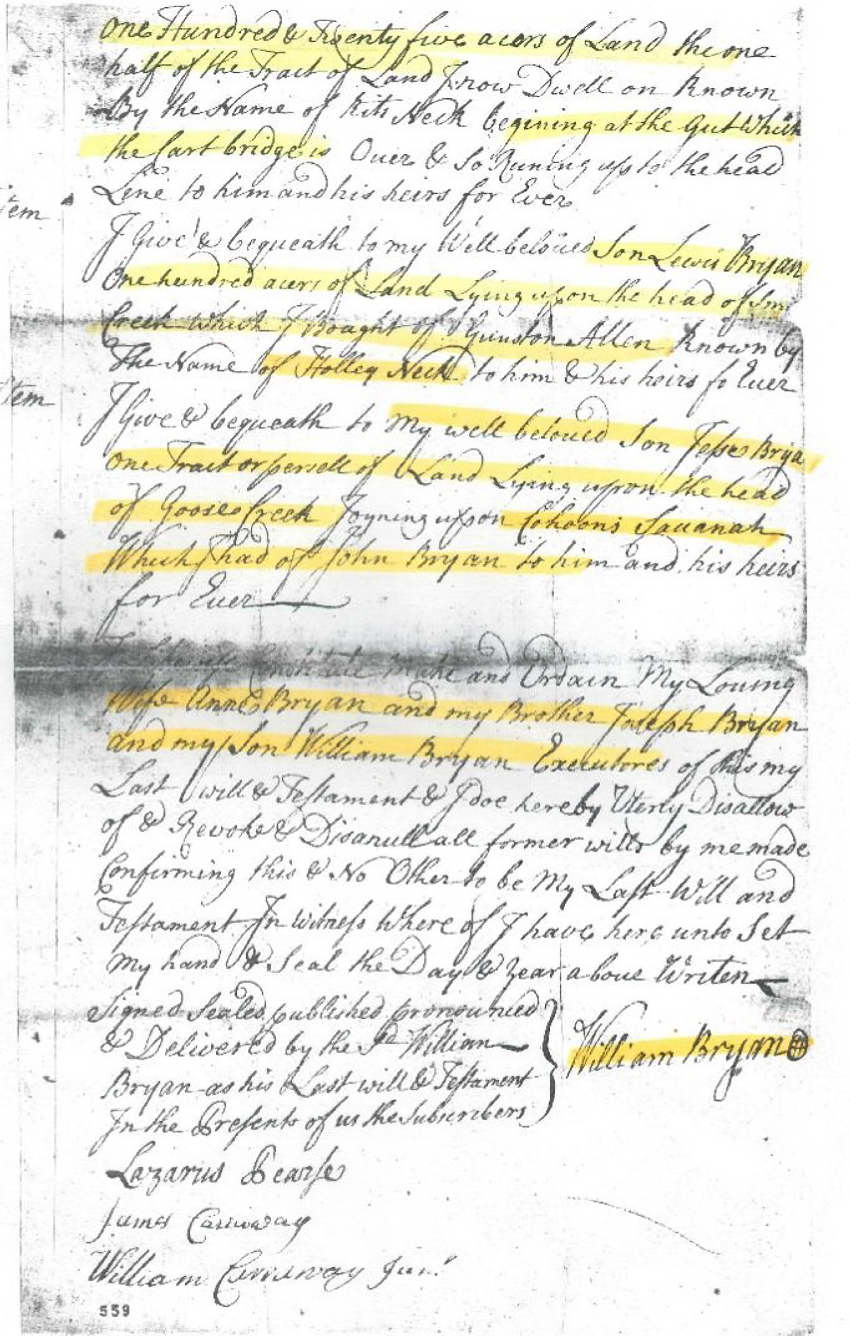 One Hundred & Twenty five acors of Land the one
half of the Tract of Land I now Dwell on Known
By the Name of Kits Neck begining at the Gut Which
the Cart bridge is Ouer & So Runing up to the head
Line to him and his heirs for Ever
tem
I Give & bequeath to my Well beloued Son Lewis Bryan
One hundred acers of Land Lying upon the head of
Creek which I Bought of Allen Known by
The Name of Holley Neck to him & his heirs fo Euer
tem
I Give & bequeath to My well beloued Son Jesse Brya
One Tract or persell of Land Lying upon the head
of Goose Creek Joyning upon Cohoons Sauanah
Which I had of John Bryan to him and his heirs
for Euer
Make and Ordain My Louing
Wife Anne Bryan and my Brother Joseph Bryan
and my Son William Bryan Executores of this my
Last will & Testament & I doe hereby Uterly Disallow
of & Revoke & Disanull all former wills by me made
Confirming this & No Other to be My Last Will and
Testament In Witness Where of I have here unto Set
My hand & Seal the Day & Year aboue Writen
Signed Sealed published pronounced
& Delivered by the Sd William
Bryan as his Last will & Testament
In the Presents of us the Subscribers
William Bryan
Lazarus Pearse
James Carraway
William Carraway Junr
559